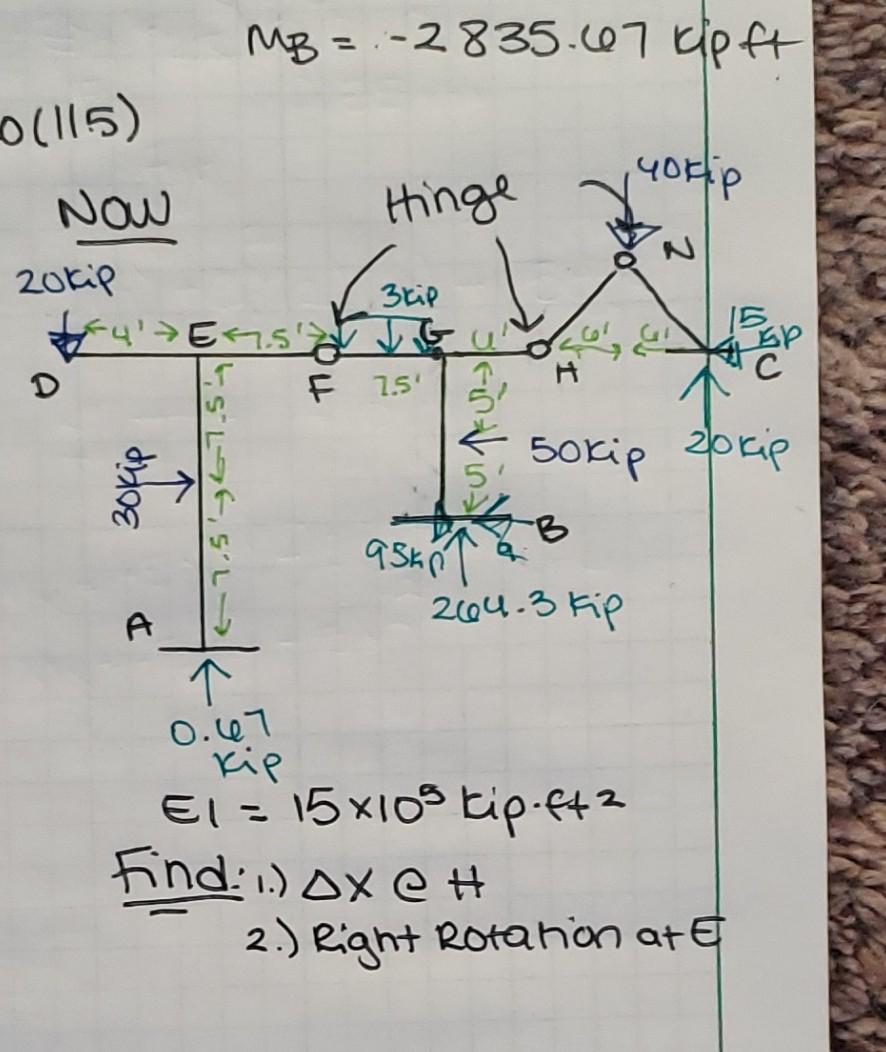 MB = -2835.67 kip ft
0(115)
NOW
Hinge
40kip
20kip
N
3kip
4'
E
7.5'
G
4'
6'
6'
15
kip
D
F
7.5'
H
C
7.5'
5'
30kip
50kip
20kip
7.5'
5'
B
95kip
264.3 kip
A
0.67
kip
EI = 15x10⁵ kip·ft2
Find: 1.) Δx @ H
2.) Right Rotation at E